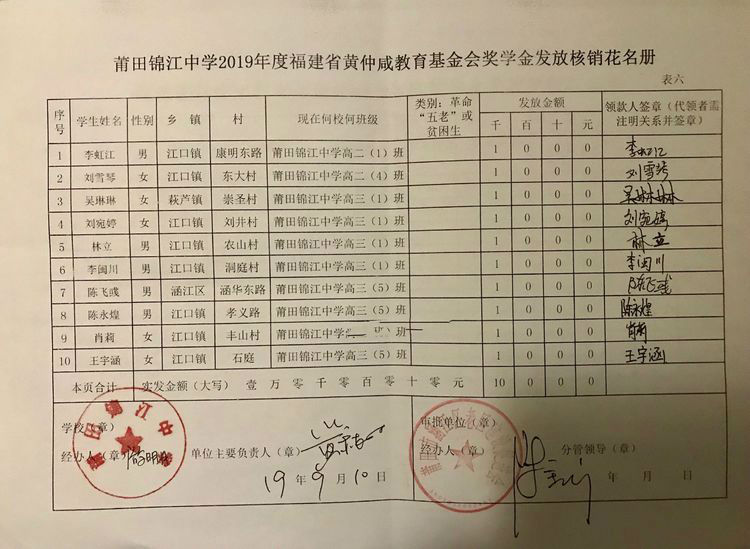 莆田锦江中学2019年度福建省黄仲咸教育基金会奖学金发放核销花名册
表六
序号 学生姓名 性别 乡 镇 村 现在何校何班级 类别：革命“五老”或贫困生 发放金额 千 百 十 元 领款人签章（代领者需注明关系并签章）
1 李虹江 男 江口镇 康明东路 莆田锦江中学高二（1）班 1 0 0 0 李虹江
2 刘雪琴 女 江口镇 东大村 莆田锦江中学高二（4）班 1 0 0 0 刘雪琴
3 吴琳琳 女 萩芦镇 崇圣村 莆田锦江中学高三（1）班 1 0 0 0 吴琳琳
4 刘宛婷 女 江口镇 刘井村 莆田锦江中学高三（1）班 1 0 0 0 刘宛婷
5 林立 男 江口镇 农山村 莆田锦江中学高三（1）班 1 0 0 0 林立
6 李闽川 男 江口镇 洞庭村 莆田锦江中学高三（1）班 1 0 0 0 李闽川
7 陈飞彧 男 涵江区 涵华东路 莆田锦江中学高三（5）班 1 0 0 0 陈飞彧
8 陈永煌 男 江口镇 孝义路 莆田锦江中学高三（5）班 1 0 0 0 陈永煌
9 肖莉 女 江口镇 丰山村 莆田锦江中学 班 1 0 0 0 肖莉
10 王宇涵 女 江口镇 石庭 莆田锦江中学高三（5）班 1 0 0 0 王宇涵
本页合计 实发金额（大写） 壹 万 零 千 零 百 零 十 零 元 10 0 0 0
学校（章） 审批单位（章）
经办人（章） 单位主要负责人（章） 经办人（章） 分管领导（章）
19 年 9 月 10 日 年 月 日
莆田锦江中学